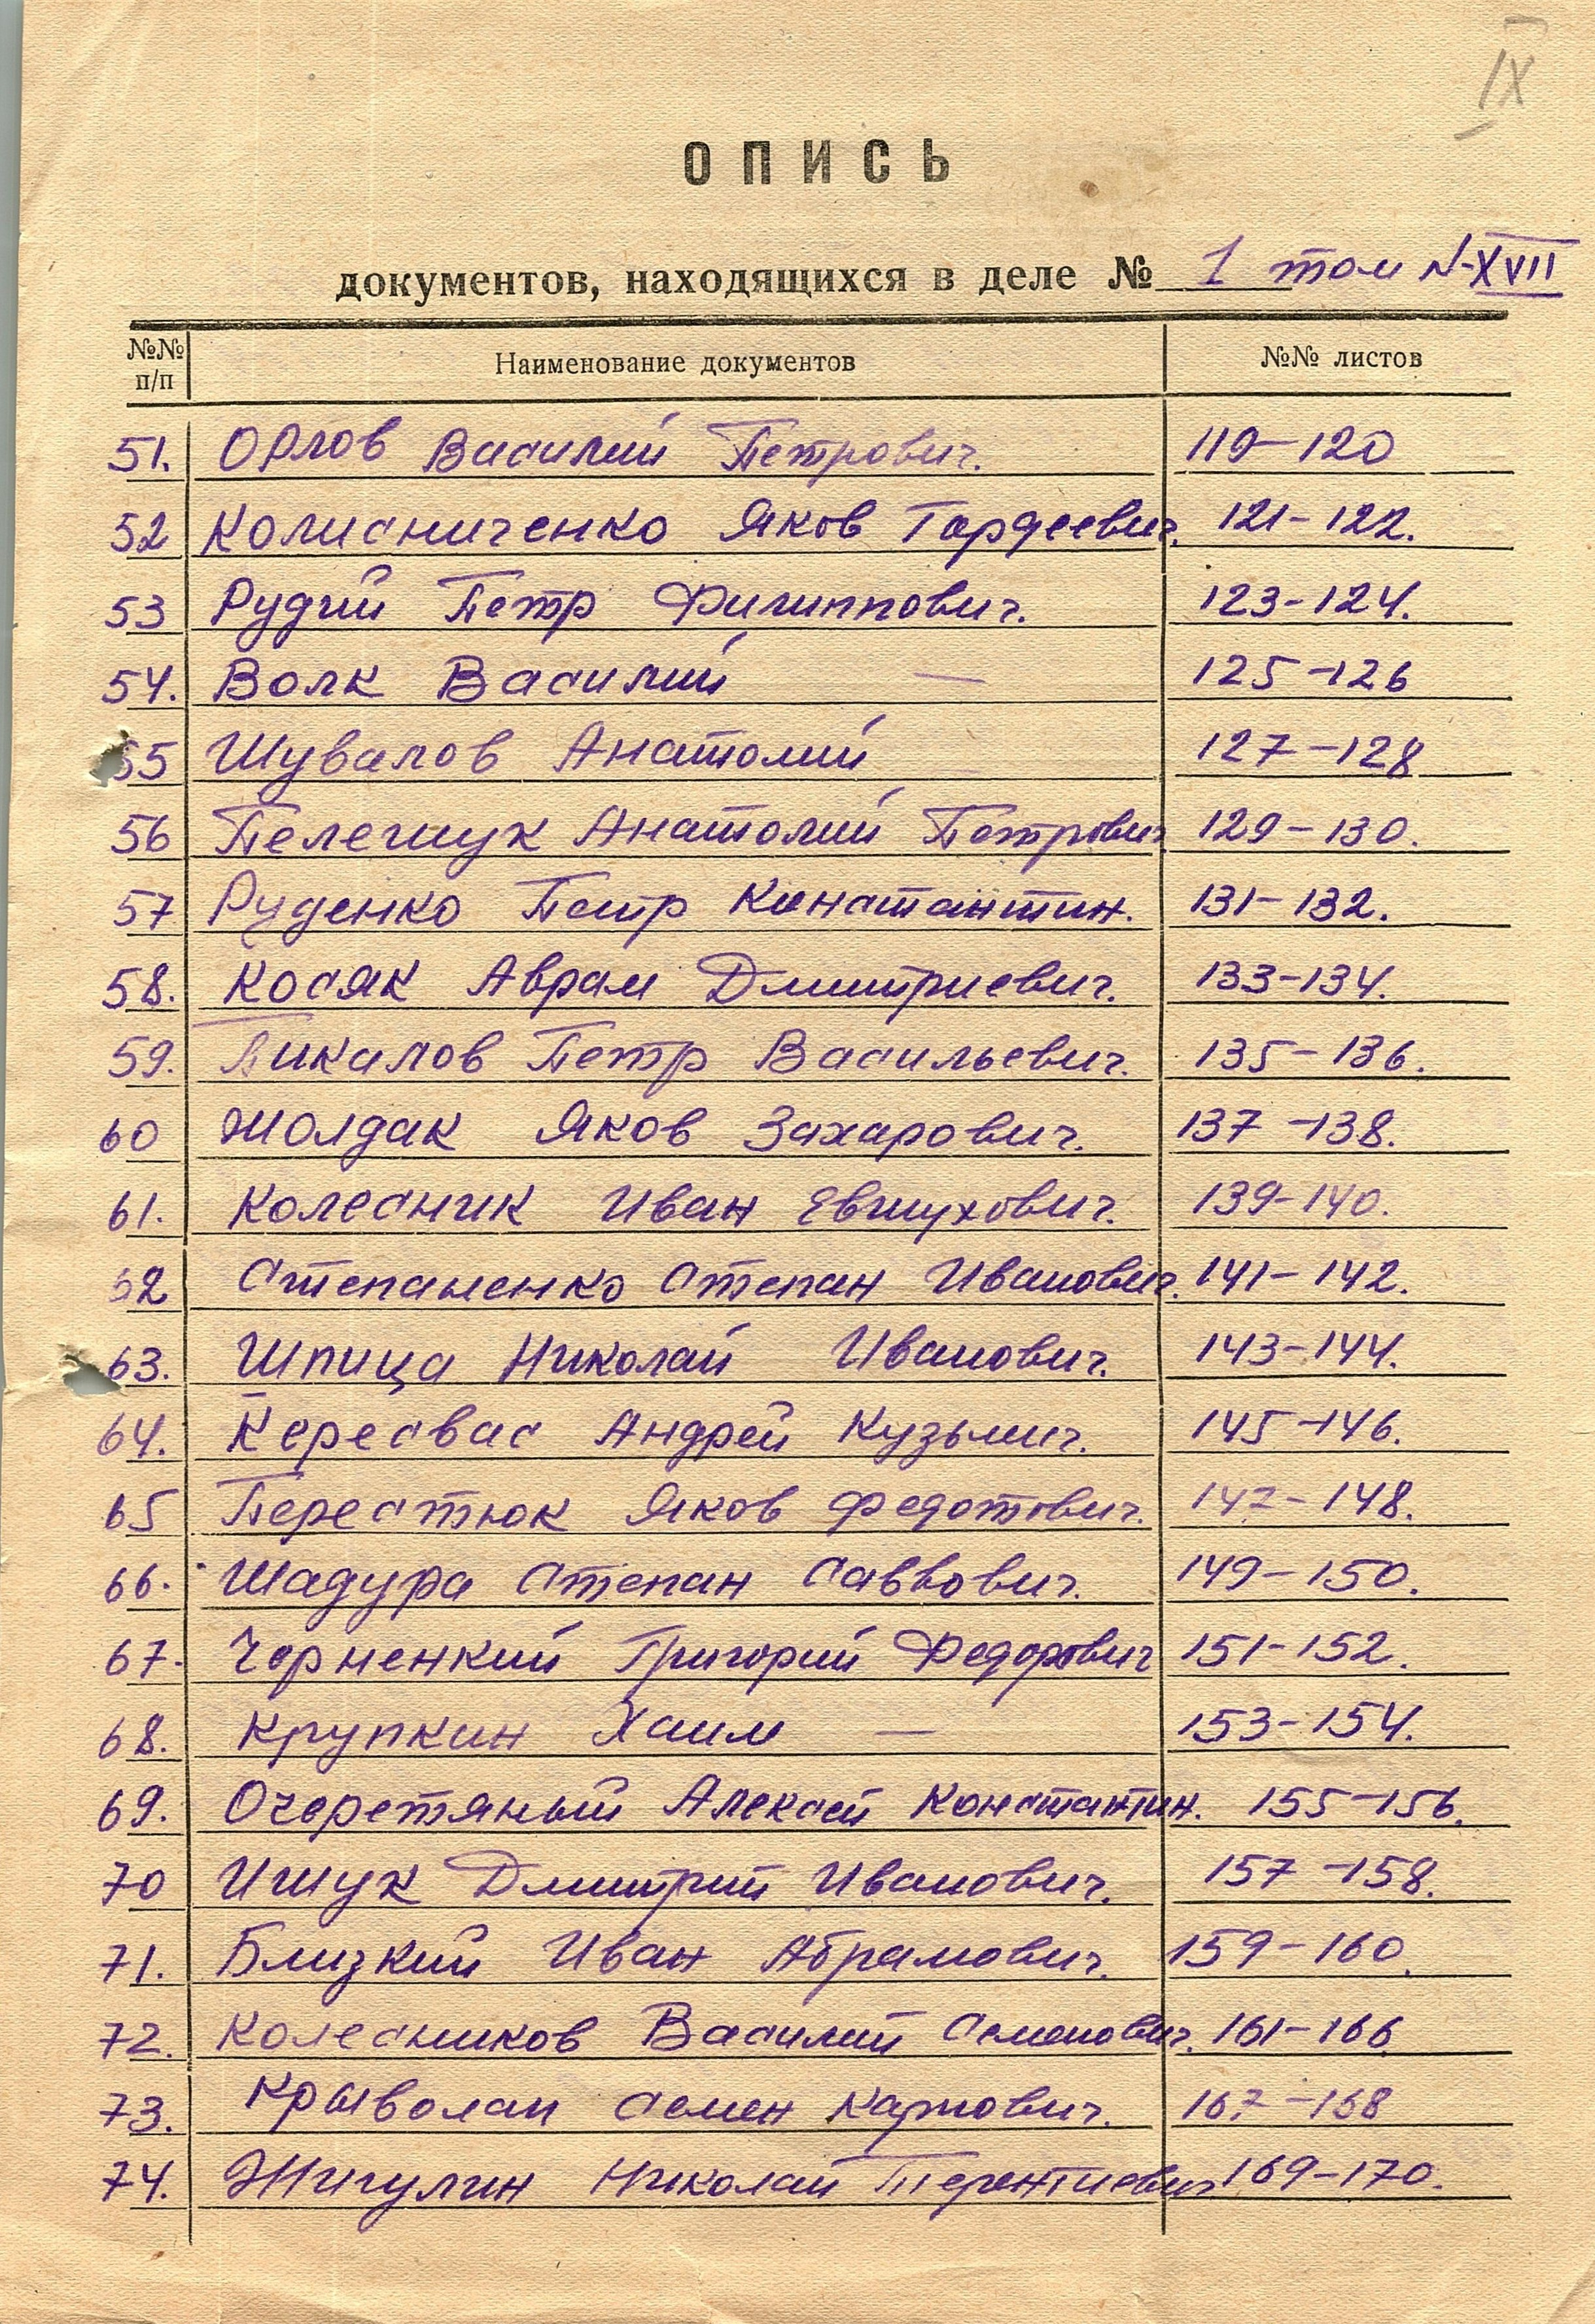 IX
ОПИСЬ
документов, находящихся в деле № 1 том N-XVII
№№ п/п Наименование документов №№ листов
51. Орлов Василий Петрович. 119-120
52 Колисниченко Яков Гордеевич. 121-122.
53 Рудий Петр Филиппович. 123-124.
54. Волк Василий — 125-126
55 Шувалов Анатолий — 127-128
56 Пелешук Анатолий Петрович 129-130.
57 Руденко Петр Константин. 131-132.
58. Косяк Аврам Дмитриевич. 133-134.
59. Пикалов Петр Васильевич. 135-136.
60 Жолдак Яков Захарович. 137-138.
61. Колесник Иван Евтухович. 139-140.
62 Степаненко Степан Иванович. 141-142.
63. Шпица Николай Иванович. 143-144.
64. Кересвас Андрей Кузьмич. 145-146.
65 Перестюк Яков Федотович. 147-148.
66. Шадура Степан Саввович. 149-150.
67. Черненкий Григорий Федорович 151-152.
68. Крупкин Хаим — 153-154.
69. Очеретяный Алексей Константин. 155-156.
70 Ишук Дмитрий Иванович. 157-158.
71. Близкий Иван Абрамович. 159-160.
72. Колесников Василий Семенович. 161-166
73. Крыволап Семен Карпович. 167-168
74. Жигулин Николай Терентиевич 169-170.